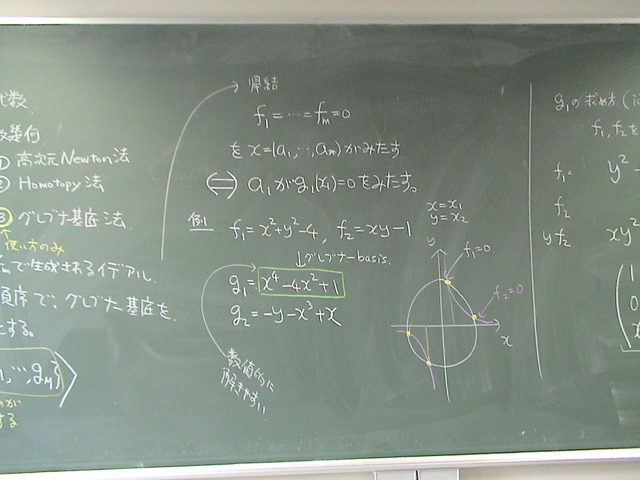 代数
幾何
① 高次元Newton法
② Homotopy法
③ グレブナ基底法
使い方のみ
で生成されるイデアル.
順序で,グレブナ基底を
とする。
,…,gₘ}⟩
する
帰結
f₁=…=fₘ=0
を x=(a₁,…,aₘ)がみたす
⟺ a₁がg₁(x₁)=0をみたす。
例1 f₁=x²+y²-4, f₂=xy-1
↓グレブナ-basis.
g₁=x⁴-4x²+1
g₂=-y-x³+x
数値的に
解きやすい
x=x₁
y=x₂
y
f₁=0
f₂=0
x
g₁の求め方
f₁,f₂を
f₁= y²-
f₂
yf₂ xy²
1
0